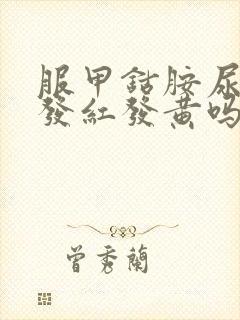 服甲鈷胺尿
發紅發黃嗎
曾秀蘭